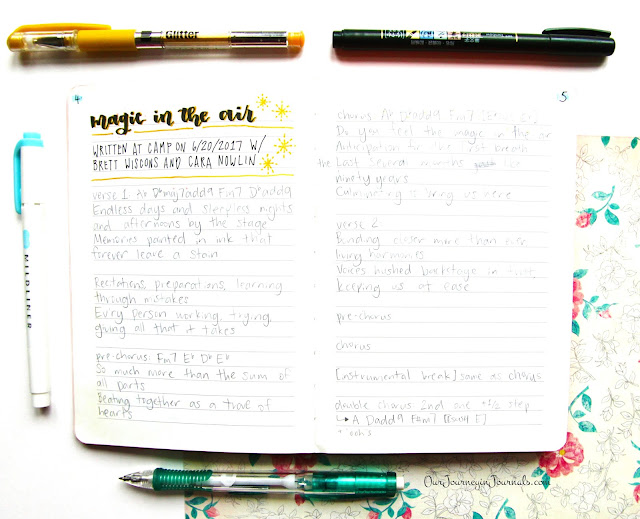 Glitter
4
magic in the air
WRITTEN AT CAMP ON 6/20/2017 W/
BRETT WISCONS AND CARA NOWLIN
verse 1 Ab Dbmaj7add9 Fm7 Dbadd9
Endless days and sleepless nights
and afternoons by the stage
Memories painted in ink that
forever leave a stain
Recitations, preparations, learning
through mistakes
Every person working, trying
giving all that it takes
pre-chorus: Fm7 Eb Db Eb
So much more than the sum of
all parts
Beating together as a trove of
hearts
5
chorus Ab Dbadd9 Fm7
Do you feel the magic in the air
Anticipation for the first breath
the Last several months like
ninety years
Culminating to bring us here
verse 2
binding closer more than ever
living harmonies
Voices hushed backstage in
keeping us at ease
pre-chorus
chorus
[instrumental break] same as chorus
double chorus 2nd one +1/2 step
↳ A Dadd9 F#m7
+ ooh's
MILDLINER
OurJourneyinJournals.com